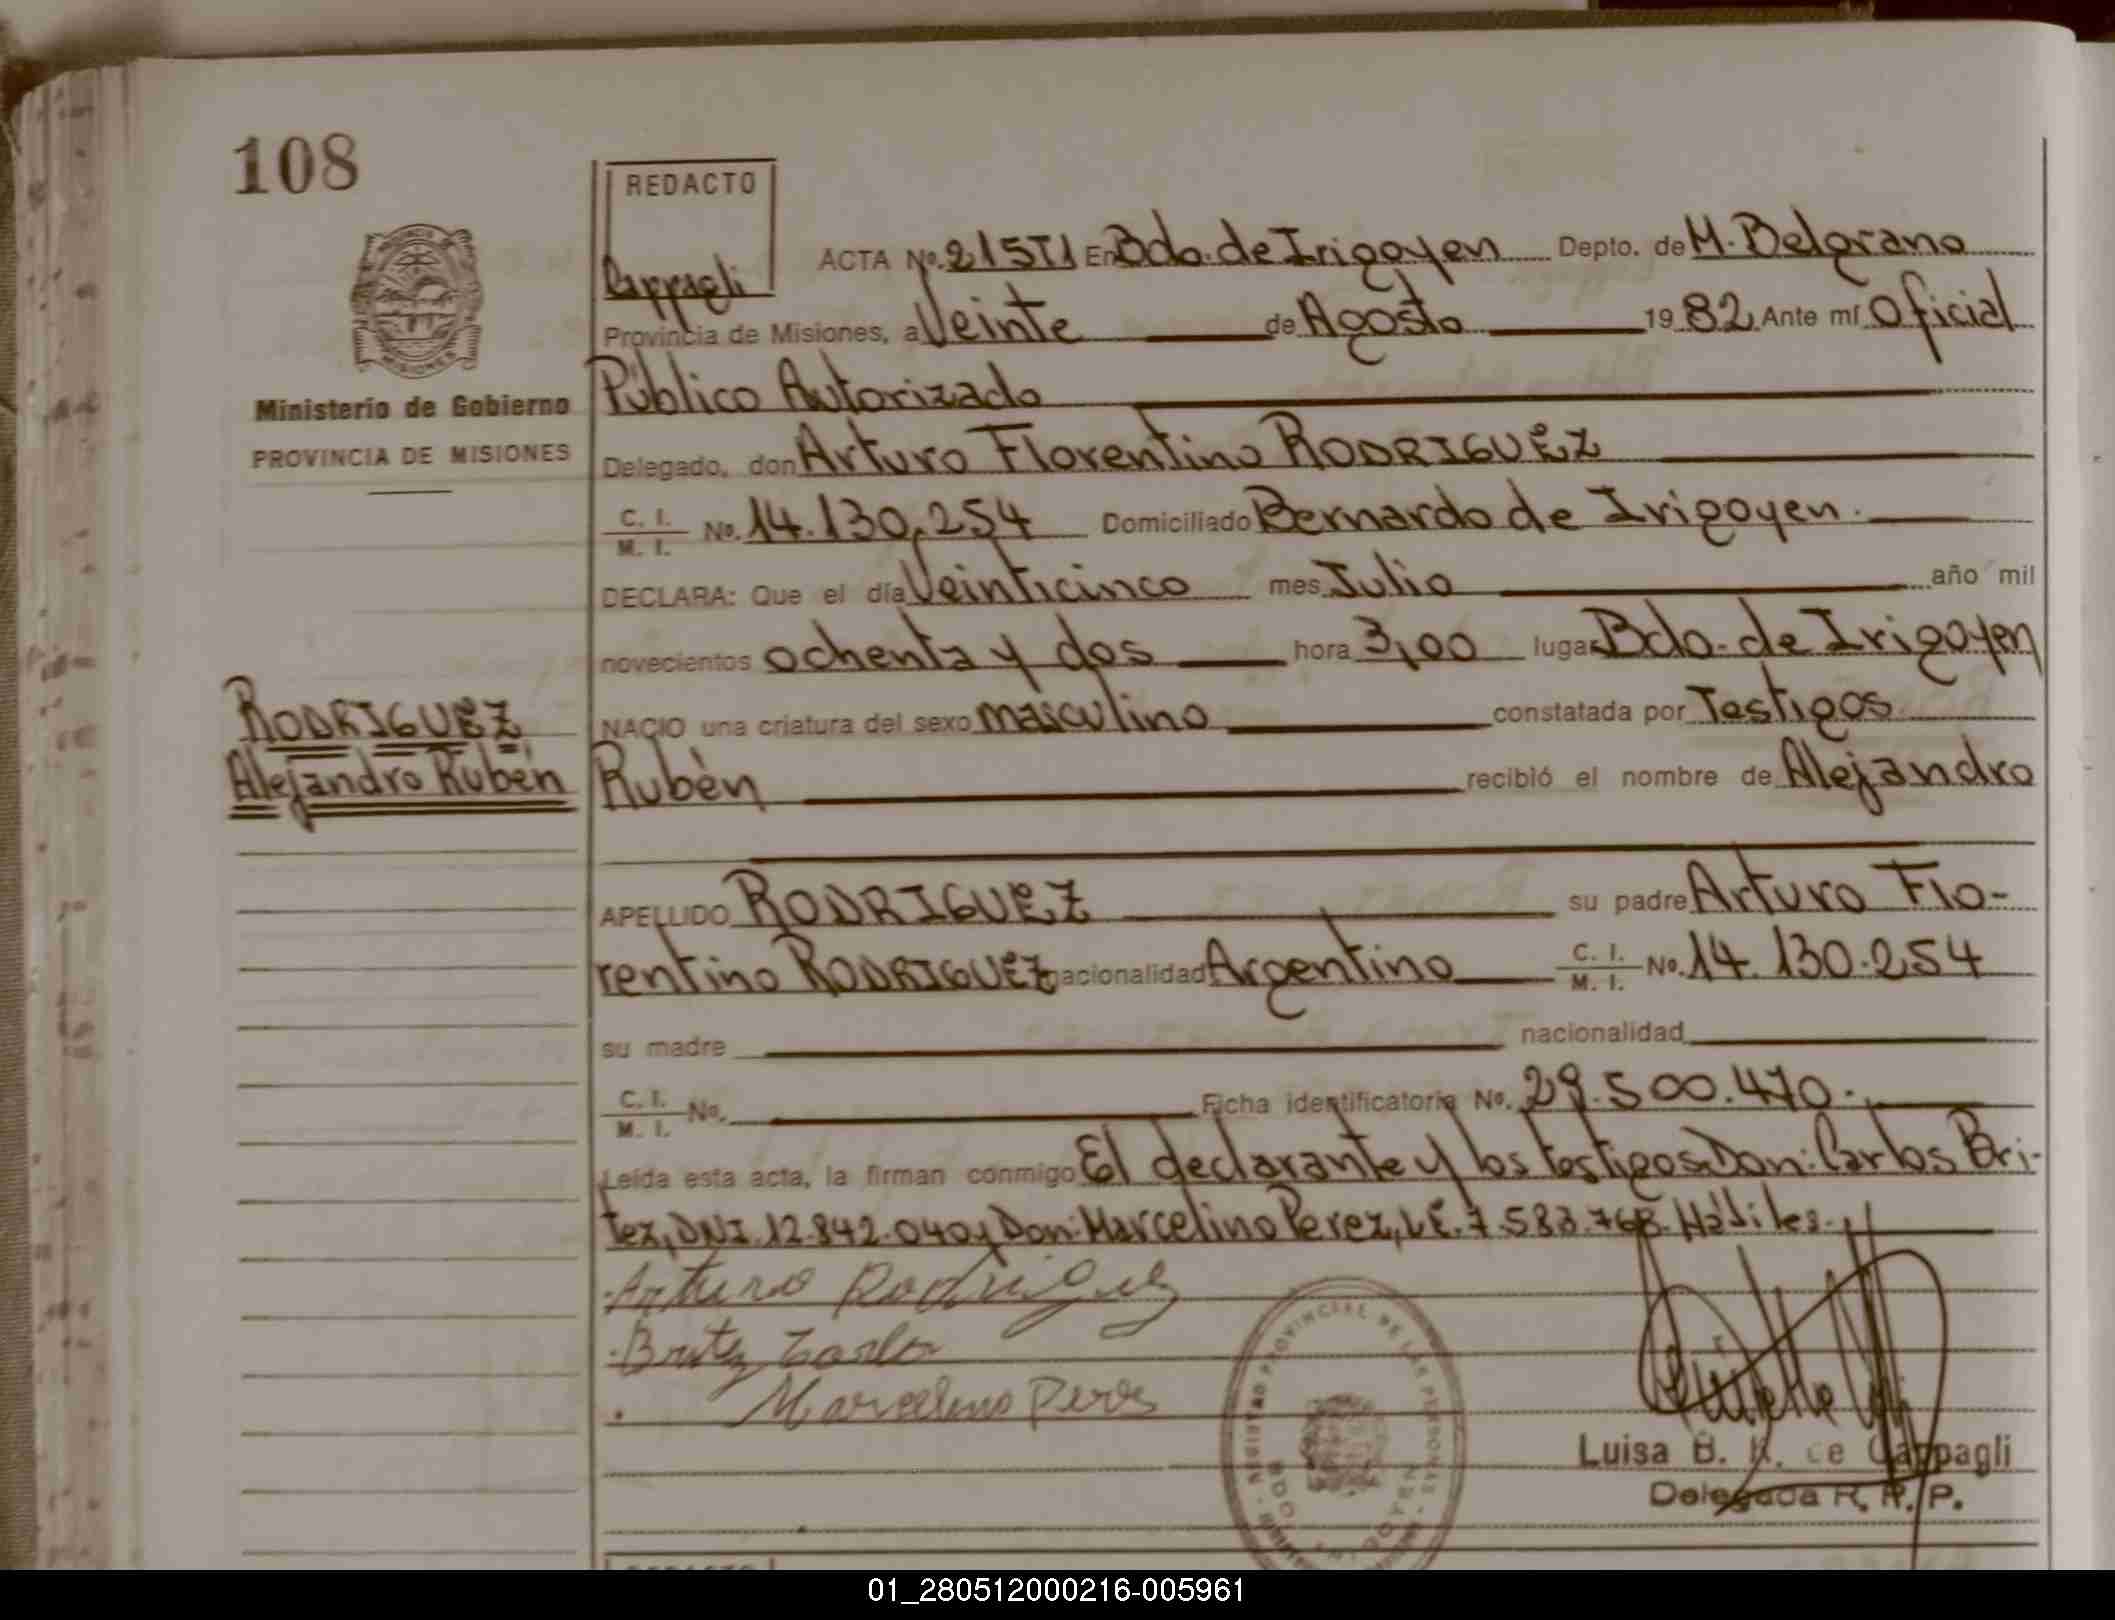 108
REDACTO
Cappagli
ACTA No. 215T1 En Bdo. de Irigoyen Depto. de M. Belgrano
Provincia de Misiones, a Veinte de Agosto 1982 Ante mí Oficial
Público Autorizado
Ministerio de Gobierno
PROVINCIA DE MISIONES
Delegado, don Arturo Florentino RODRIGUEZ
C. I. / M. I. No. 14.130.254 Domiciliado Bernardo de Irigoyen.
DECLARA: Que el día Veinticinco mes Julio año mil
novecientos ochenta y dos hora 3,00 lugar Bdo. de Irigoyen
RODRIGUEZ
Alejandro Rubén
NACIO una criatura del sexo masculino constatada por Testigos
Rubèn recibió el nombre de Alejandro
APELLIDO RODRIGUEZ su padre Arturo Flo-
rentino RODRIGUEZ nacionalidad Argentino C. I. / M. I. No. 14.130.254
su madre nacionalidad
C. I. / M. I. No. Ficha identificatoria No. 29.500.470.
Leída esta acta, la firman conmigo El declarante y los testigos Don: Carlos Bri-
tez, DNI. 12.842.040 y Don: Marcelino Perez, L.E. 7.583.768. Hábiles.
Arturo Rodriguez
Britez Carlos
Marcelino Perez
REGISTRO PROVINCIAL DE LAS PERSONAS
Luisa B. K. de Cappagli
Delegada R. P. P.
01_280512000216-005961